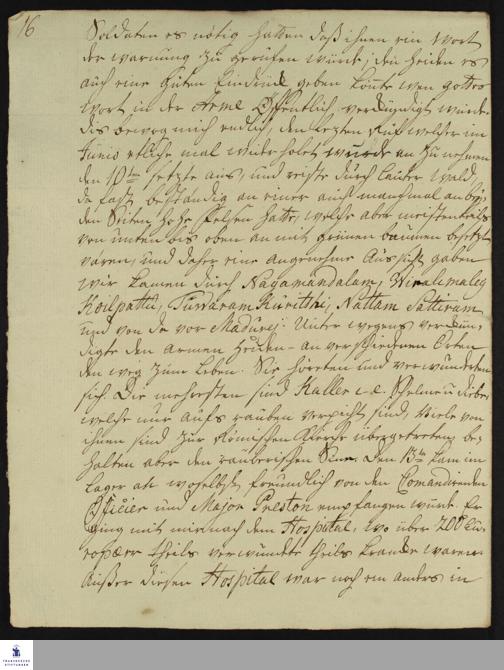 16
Soldaten es nötig hatten daß ihnen ein Wort
der warnung zu gerufen würde, den Heiden es
auch eine guten Eindruk geben könte wen gottes
wort in der Armé öffentlich verkündigt würde.
dis bewog mich endlich, den lezten Ruf welcher im
Junio etliche mal wiederholet wurde an zu nehmen
den 10ten setzte aus, und reiste durch lauter wald,
da fast beständig an einer auch manchmal an bey-
den Seiten hohe felsen hatte, welche aber meistentheils
von unten bis oben an mit grünen bäumen besetzt
waren, und daher eine angenehme Aussicht gaben
wir kamen durch Nagamandalam, Wiralimaley
Koilpattu, Tuwaram Kuritschi, Nattam Sattiram
und von da vor Madurej. Unter wegens verkün-
digte den armen Heiden an verschiedenen Orten
den weg zum Leben. Sie höreten und verwunderten
sich. Die mehresten sind Kaller i. e. Schelme u Diebe
welche nur aufs rauben verpicht sind, Viele von
ihnen sind zur Römischen Kirche übergetreten, be-
halten aber den räuberischen Sinn. Den 13ten kam im
Lager an woselbst freundlich von den Comandirenden
Officier und Major Preston empfangen wurde. Er
ging mit mir nach dem Hospital, wo über 200 Eu-
ropæer theils verwundete theils krancke waren.
Außer diesen Hospital war noch ein anders in
FRANCKESCHE
STIFTUNGEN